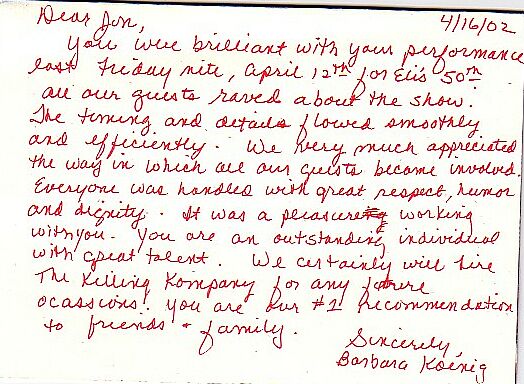 Dear Jon,
4/16/02
You were brilliant with your performance
last Friday nite, April 12th for Eli's 50th
All our guests raved about the show.
The timing and details flowed smoothly
and efficiently. We very much appreciated
the way in which all our guests became involved.
Everyone was handled with great respect, humor
and dignity. It was a pleasure working
with you. You are an outstanding individual
with great talent. We certainly will hire
The Killing Kompany for any future
ocassions. You are our #1 recommendation
to friends + family.
Sincerely,
Barbara Koenig